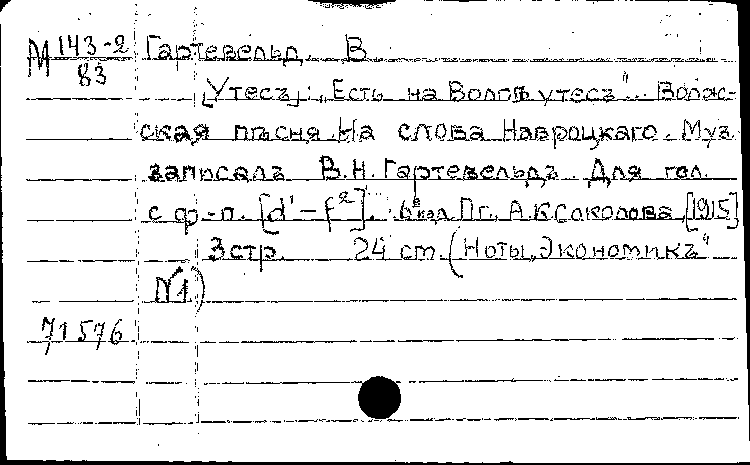 М 143-2 Гартевельд. В.
83
[Утесъ]: „Есть на Волгѣ утесъ". Волж-
ская пѣсня. На слова Навроцкаго. Муз.
записалъ В.Н. Гартевельдъ. Для гол.
с ф.-п. [d'-f²]. 6е изд. Пг., А.К. Соколова, [1915]
3 стр. 24 ст. (Ноты „Экономикъ"
№1)
71576